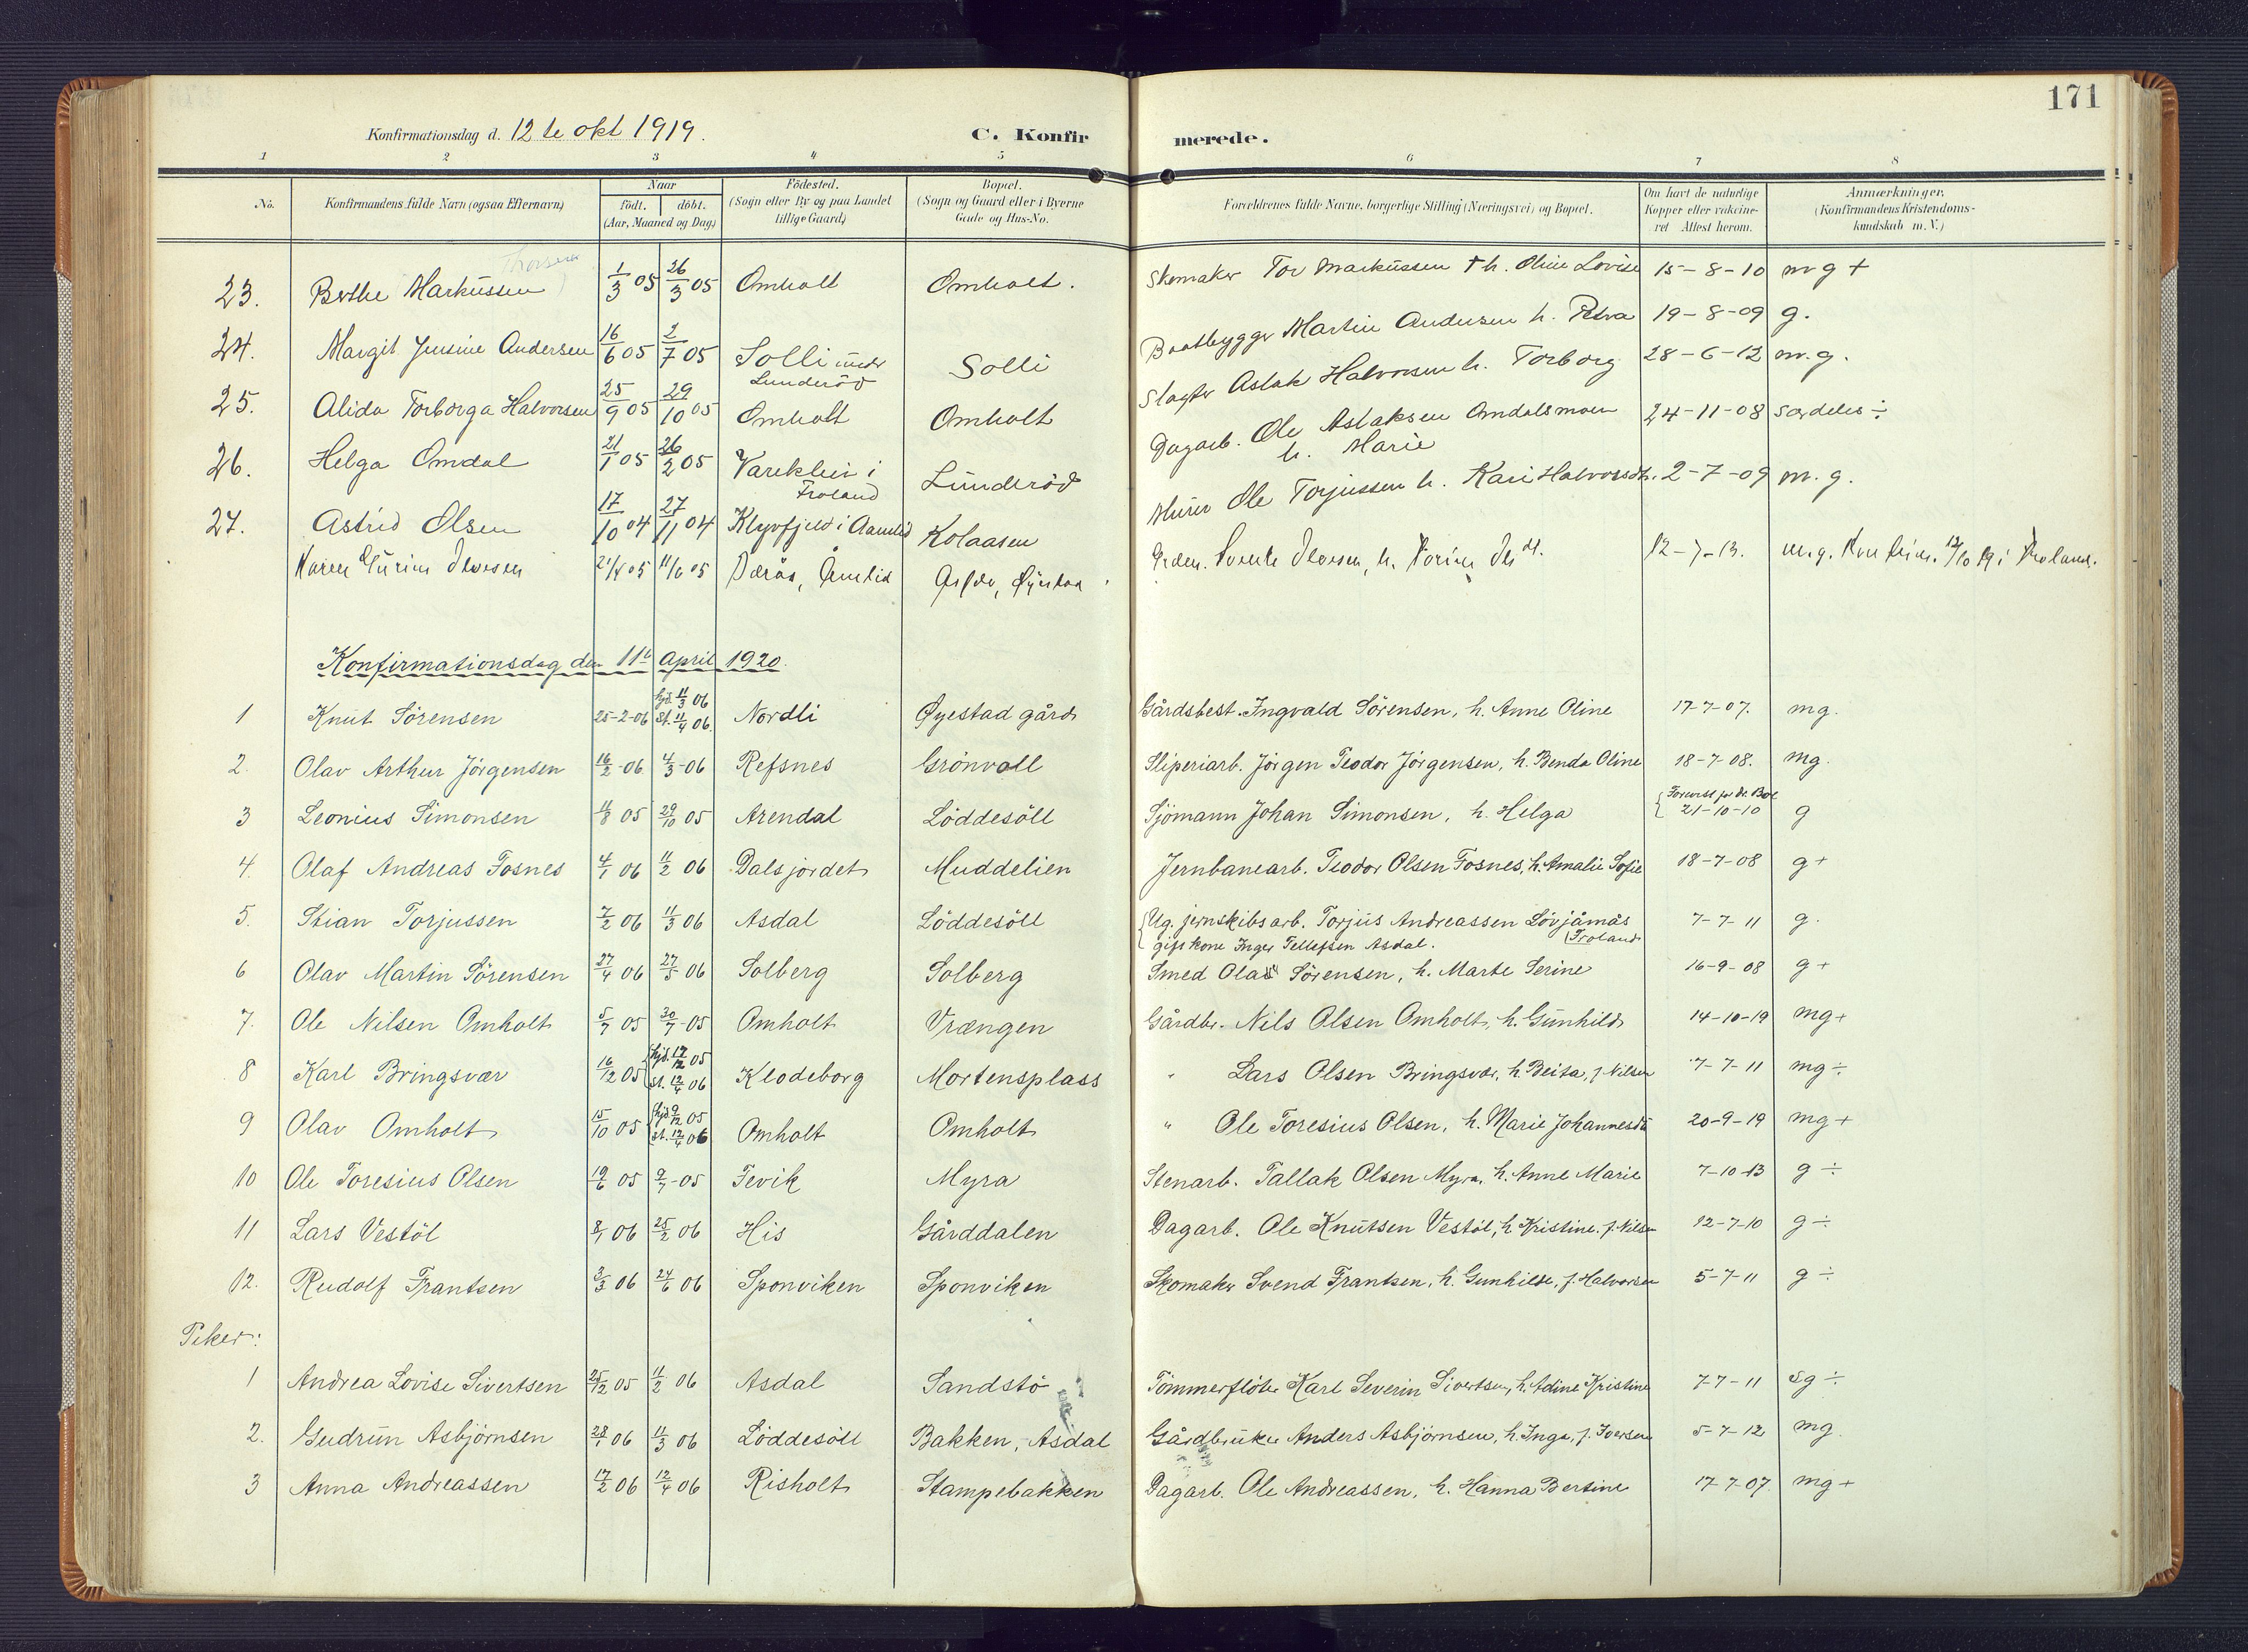 171
Konfirmationsdag d. 12te okt 1919.
C. Konfirmerede.
1 2 3 4 5 6 7 8
No. Konfirmandens fulde Navn (ogsaa Efternavn) Naar födt. döbt. (Aar, Maaned og Dag) Födested. (Sogn eller By og paa Landet tillige Gaard) Bopæl. (Sogn og Gaard eller i Byerne Gade og Hus-No. Forældrenes fulde Navne, borgerlige Stilling (Næringsvei) og Bopæl. Om havt de naturlige Kopper eller vakcineret Attest herom. Anmærkninger. (Konfirmandens Kristendomskundskab m. V.)
23. Berthe Markussen 1/3 05 26/3 05 Omholt Omholt. Skomaker Tor Markussen + h. Oline Lovise 15-8-10 mg +
24. Margit Jensine Andersen 16/6 05 2/7 05 Solli under Lunderöd Solli Baatbygger Martin Andersen h. Petra 19-8-09 g.
25. Alida Torborga Halvorsen 25/9 05 29/10 05 Omholt Omholt Slagter Aslak Halvorsen h. Torborg 28-6-12 m.g.
26. Helga Omdal 21/1 05 26/2 05 Vareklei i Froland Lunderöd Dagarb. Ole Aslaksen Omdalsmoen h. Marie 24-11-08 særdeles ÷
27. Astrid Olsen 17/10 04 27/11 04 Klyvfjeld i Aamlid Kolaasen Murer Ole Torjussen h. Kari Halvorsdt. 2-7-09 m.g.
Karen 21/4 05 11/6 05 Åmlid 12-7-13. m.g. 12/10 19 i Froland.
Konfirmationsdag den 11te April 1920.
1 Knut Sörensen 25-2-06 hjd. 11/3 06 st. 11/4 06. Nordli Øyestad gård Gårdsbest. Ingvald Sörensen, h. Anne Oline 17-7-07. mg.
2. Olav Arthur Jörgensen 16/2-06 4/3-06 Refsnes Grönvoll Sliperiarb. Jörgen Teodor Jörgensen, h. Benda Oline 18-7-08. mg.
3 Leonius Simonsen 11/8 05 29/10 05 Arendal Löddesöll Sjömann Johan Simonsen, h. Helga 21-10-10 g
4. Olaf Andreas Fosnes 4/1 06 11/2 06 Dalsjordet Muddelien Jernbanearb. Teodor Olsen Fosnes, h. Amalie Sofie 18-7-08 g+
5. Stian Torjussen 7/2 06 11/3 06 Asdal Löddesöll Ug. jernskibsarb. Torjus Andreassen Lövjåmås (Froland
gift kone Inger Tellefsen Asdal. 7-7-11 g.
6 Olav Martin Sörensen 27/4 06 27/5 06 Solberg Solberg Smed Olaf Sörensen, h. Marte Serine 16-9-08 g+
7. Ole Nilsen Omholt 5/7 05 30/7-05 Omholt Vrængen Gårdbr. Nils Olsen Omholt, h. Gunhild 14-10-19 mg+
8 Karl Bringsvær 16/12 05 hjd. 17/12 05 st. 12/4 06 Klodeborg Mortensplass " Lars Olsen Bringsvær, h. Beita, f. Nilsen 7-7-11 mg÷
9 Olav Omholt 15/10 05 hjd. 9/12 05 st. 12/4 06 Omholt Omholt " Ole Toresius Olsen, h. Marie Johannesdt 20-9-19 mg+
10 Ole Toresius Olsen 19/6 05 9/7-05 Fevik Myra Stenarb. Tallak Olsen Myra, h. Anne Marie 7-10-13 g÷
11 Lars Vestöl 8/1 06 25/2 06 His Gårddalen Dagarb. Ole Knutsen Vestöl, h. Kristine. f. Nilsen 12-7-10 g÷
12. Rudolf Frantsen 3/3 06 24/6 06 Sponviken Sponviken Skomaker Svend Frantsen, h. Gunhilde, f. Halvorsen 5-7-11 g÷
Piker:
1 Andrea Lovise Sivertsen 25/12 05 11/2 06 Asdal Sandstö Tömmerflöter Karl Severin Sivertsen, h. Adine Kristine 7-7-11 sg÷
2. Gudrun Asbjörnsen 28/1 06 11/3 06 Löddesöll Bakken, Asdal Gårdbruker Anders Asbjörnsen, h. Inga, f. Iversen 5-7-12 mg.
3 Anna Andreassen 17/2 06 12/4 06 Risholt Stampebakken Dagarb. Ole Andreassen, h. Hanna Bertine 17-7-07. mg+